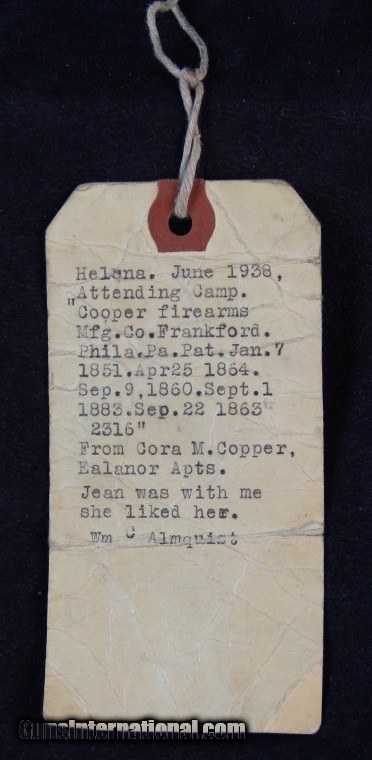 Helena. June 1938,
Attending Camp.
"Cooper firearms
Mfg.Co.Frankford.
Phila.Pa.Pat.Jan.7
1851.Apr25 1864.
Sep.9,1860.Sept.1
1883.Sep.22 1863
2316"
From Cora M.Copper,
Ealanor Apts.
Jean was with me
she liked her.
Wm C Almquist
GunsInternational.com